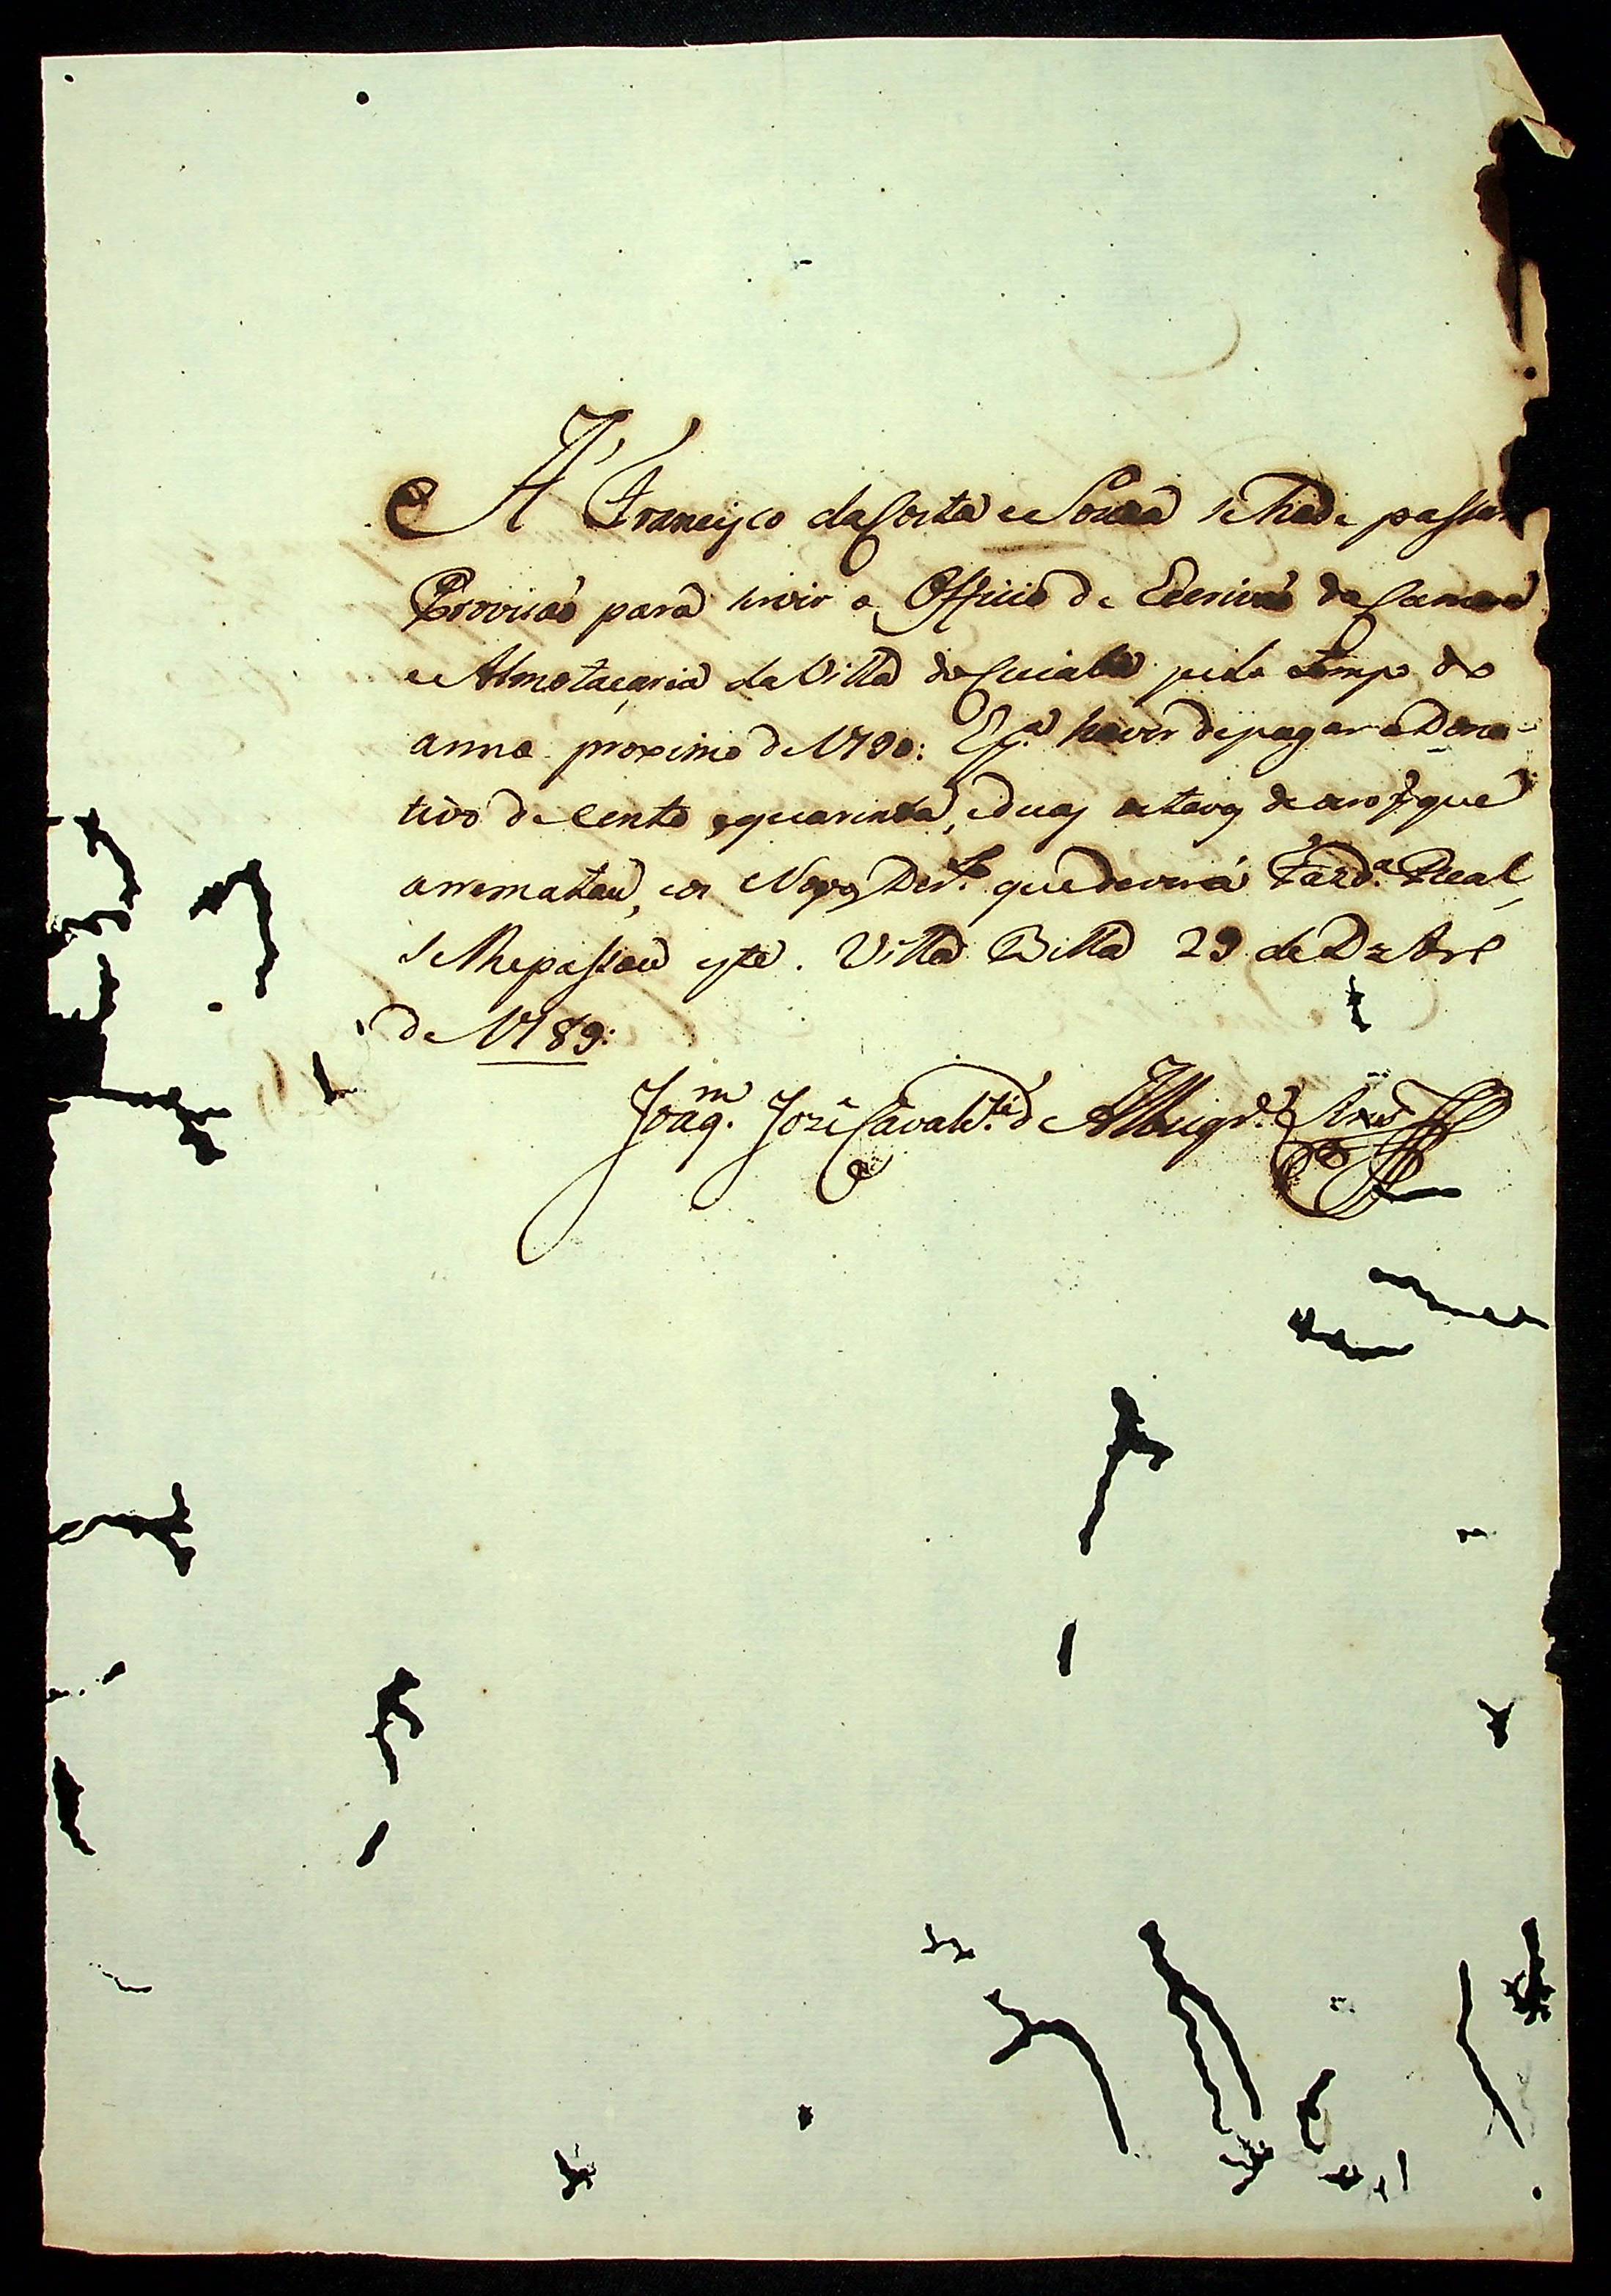 A Francisco da Costa e Souza se hade passar
Provisaõ para servir o Officio de Escrivaõ da Camara
e Almotaçaria da Villa do Cuiabá pelo tempo do
anno proximo de 1790: E p.ª haver de pagar o Dona-
tivo de cento e quarenta, e duas oitavas de ouro p.r que
arrematou, e os Novos Dir.tos que dever á Fazd.ª Real,
se lhe passou este. Villa Bella 29 de Dzbro
de 1789:
Joaq.m José Cavalc.te d'Albuqr.e